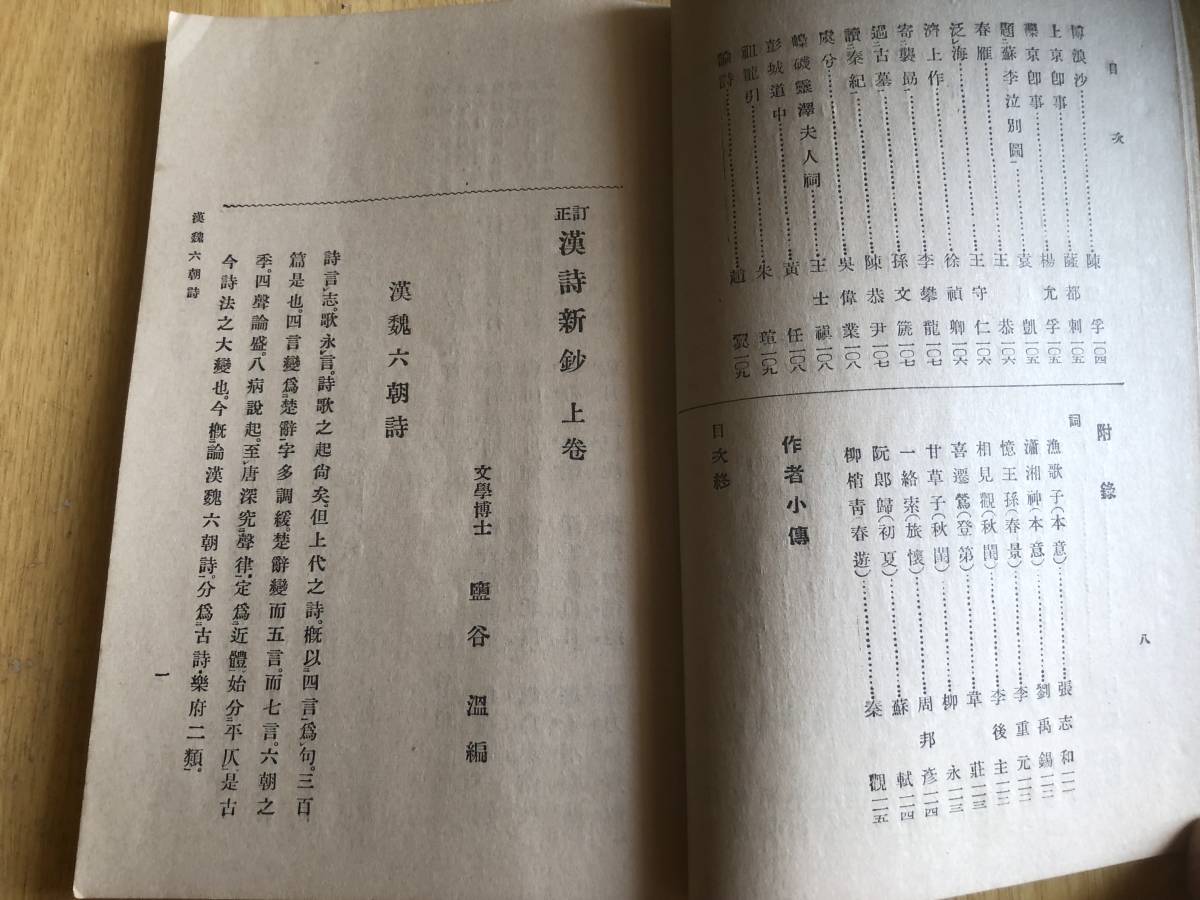 目次
博浪沙……陳孚一〇四
上京卽事……薩都剌一〇五
灤京卽事……楊允孚一〇五
題蘇李泣別圖……袁凱一〇五
春雁……王恭一〇六
泛海……王守仁一〇六
濟上作……徐禎卿一〇六
寄襲勗……李攀龍一〇七
過古墓……孫文箎一〇七
讀秦紀……陳恭尹一〇七
虞兮……吳偉業一〇八
蟂磯靈澤夫人祠……王士禛一〇八
彭城道中……黃任一〇八
祖龍引……朱瑄一〇九
論詩……趙翼一〇九
附錄
詞
漁歌子(本意)……張志和一一
瀟湘神(本意)……劉禹錫一二
憶王孫(春景)……李重元一二
相見觀(秋閨)……李後主一三
喜遷鶯(登第)……韋莊一三
甘草子(秋閨)……柳永一三
一絡索(旅懷)……周邦彥一四
阮郞歸(初夏)……蘇軾一四
柳梢靑春遊)……秦觀一五
作者小傳
目次終
八
訂正 漢詩新鈔 上卷
文學博士 鹽谷溫編
漢魏六朝詩
詩言レ志。歌永レ言。詩歌之起尙矣。但上代之詩。槪以二四言一爲レ句。三百
篇是也。四言變爲二楚辭一。字多調緩。楚辭變而五言。而七言。六朝之
季。四聲論盛。八病說起。至レ唐深究二聲律一。定爲二近體一。始分二平仄一。是古
今詩法之大變也。今槪二論漢魏六朝詩一。分爲二古詩・樂府二類一。
漢魏六朝詩
一